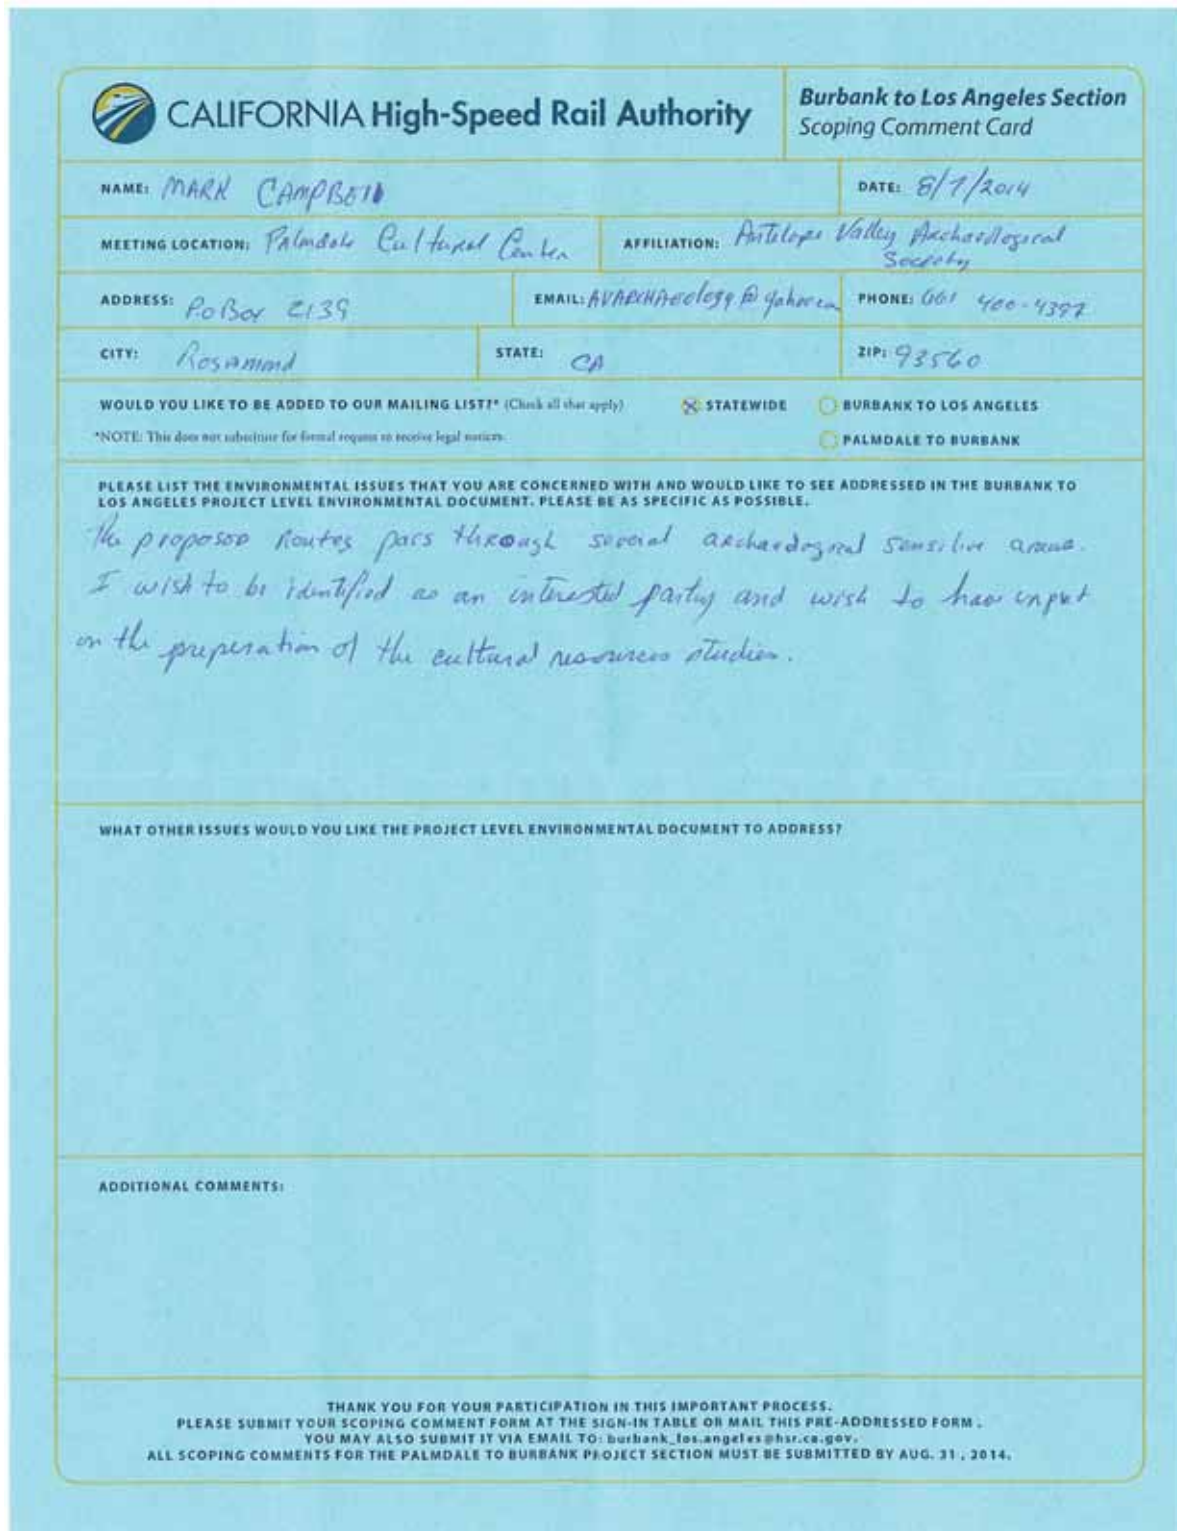 CALIFORNIA High-Speed Rail Authority
Burbank to Los Angeles Section
Scoping Comment Card
NAME: MARK CAMPBELL
DATE: 8/7/2014
MEETING LOCATION: Palmdale Cultural Center
AFFILIATION: Antelope Valley Archaeological
Society
ADDRESS: PO Box 2139
EMAIL: AVARCHAeology@yahoo.com
PHONE: 661 400-4397
CITY: Rosamond
STATE: CA
ZIP: 93560
WOULD YOU LIKE TO BE ADDED TO OUR MAILING LIST?* (Check all that apply)
STATEWIDE
BURBANK TO LOS ANGELES
*NOTE: This does not substitute for formal request to receive legal notices.
PALMDALE TO BURBANK
PLEASE LIST THE ENVIRONMENTAL ISSUES THAT YOU ARE CONCERNED WITH AND WOULD LIKE TO SEE ADDRESSED IN THE BURBANK TO
LOS ANGELES PROJECT LEVEL ENVIRONMENTAL DOCUMENT. PLEASE BE AS SPECIFIC AS POSSIBLE.
The proposed Routes pass through several archaeological sensitive areas.
I wish to be identified as an interested party and wish to have input
on the preperation of the cultural resources studies.
WHAT OTHER ISSUES WOULD YOU LIKE THE PROJECT LEVEL ENVIRONMENTAL DOCUMENT TO ADDRESS?
ADDITIONAL COMMENTS:
THANK YOU FOR YOUR PARTICIPATION IN THIS IMPORTANT PROCESS.
PLEASE SUBMIT YOUR SCOPING COMMENT FORM AT THE SIGN-IN TABLE OR MAIL THIS PRE-ADDRESSED FORM.
YOU MAY ALSO SUBMIT IT VIA EMAIL TO: burbank_los.angeles@hsr.ca.gov.
ALL SCOPING COMMENTS FOR THE PALMDALE TO BURBANK PROJECT SECTION MUST BE SUBMITTED BY AUG. 31, 2014.